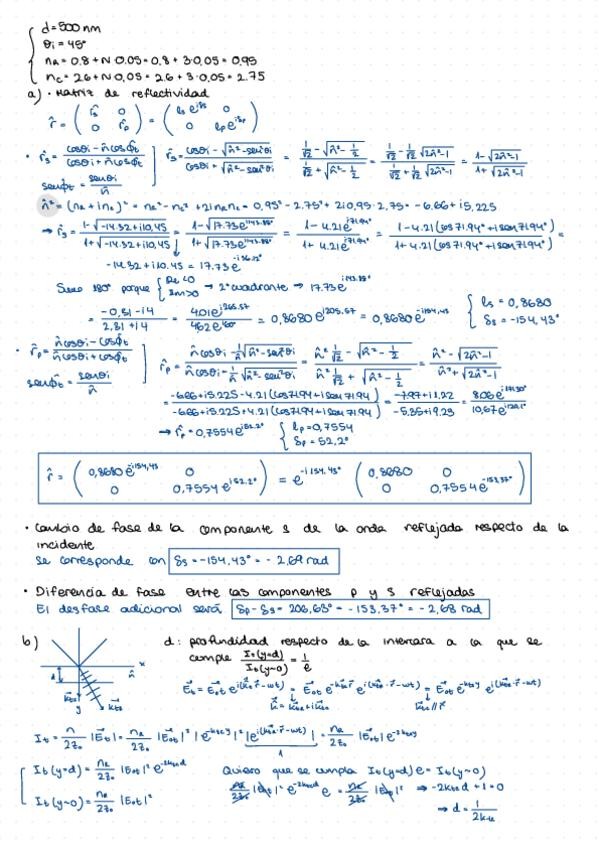 d = 500 nm
θi = 45°
nR = 0.8 + N·0.05 = 0.8 + 3·0.05 = 0.95
nc = 2.6 + N·0.05 = 2.6 + 3·0.05 = 2.75
a) · Matriz de reflectividad
r̂ = ( r̂s 0 ; 0 r̂p ) = ( ρs e^{iδs} 0 ; 0 ρp e^{iδp} )
· r̂s = (cosθi - n̂cosϕ̂t)/(cosθi + n̂cosϕ̂t) ] r̂s = (cosθi - √(n̂² - sen²θi))/(cosθi + √(n̂² - sen²θi)) = (1/√2 - √(n̂² - 1/2))/(1/√2 + √(n̂² - 1/2)) = (1/√2 - 1/√2 √(2n̂²-1))/(1/√2 + 1/√2 √(2n̂²-1)) = (1 - √(2n̂²-1))/(1 + √(2n̂²-1))
senϕ̂t = senθi/n̂
n̂² = (nR + i nc)² = nR² - nc² + 2i nR nc = 0.95² - 2.75² + 2i 0.95·2.75 = -6.66 + i5.225
→ r̂s = (1 - √(-14.32 + i10.45))/(1 + √(-14.32 + i10.45)) = (1 - √(17.73e^{i143.88°}))/(1 + √(17.73e^{i143.88°})) = (1 - 4.21e^{i71.94°})/(1 + 4.21e^{i71.94°}) = (1 - 4.21(cos71.94° + i sen71.94°))/(1 + 4.21(cos71.94° + i sen71.94°)) =
-14.32 + i10.45 = 17.73e^{-i36.12°}
Sumo 180° porque { Re<0 Im>0 → 2° cuadrante → 17.73e^{i143.88°}
= (-0,31 - i4)/(2,31 + i4) = = 0,8680 e^{i205.57} = 0,8680e^{-i154,43°} { ρs = 0,8680
δs = -154,43°
· r̂p = (n̂cosθi - cosϕ̂t)/(n̂cosθi + cosϕ̂t) ] r̂p = (n̂cosθi - 1/n̂ √(n̂² - sen²θi))/(n̂cosθi + 1/n̂ √(n̂² - sen²θi)) = (n̂² 1/√2 - √(n̂² - 1/2))/(n̂² 1/√2 + √(n̂² - 1/2)) = (n̂² - √(2n̂²-1))/(n̂² + √(2n̂²-1))
senϕ̂t = senθi/n̂
= (-6.66 + i5.225 - 4.21(cos71.94 + i sen71.94))/(-6.66 + i5.225 + 4.21(cos71.94 + i sen71.94)) = (-7.97 + i1.22)/(-5.35 + i9.23) =
→ r̂p = 0,7554e^{i52.2°} { ρp = 0,7554
δp = 52,2°
r̂ = ( 0,8680e^{-i154,43} 0 ; 0 0,7554 e^{i52.2°} ) = e^{-i154.43°} ( 0,8680 0 ; 0 0,7554e^{-i153.37°} )
· Cambio de fase de la componente s de la onda reflejada respecto de la
incidente
se corresponde con δs = -154,43° = -2,69 rad
· Diferencia de fase entre las componentes p y s reflejadas
El desfase adicional será δp - δs = 206,63° = -153,37° = -2,68 rad
b) d: profundidad respecto de la intercara a la que se
cumple It(y=d)/It(y~0) = 1/e
x
n̂
d
y
Et = E0t e^{i(kt·r - wt)} = E0t e^{-ktc·r} e^{i(ktR·r - wt)} = E0t e^{-ktc y} e^{i(ktR·r - wt)}
It = n/2z0 |Et| = nR/2z0 |E0t|² |e^{-ktc y}|² |e^{i(ktR·r - wt)}| = nR/2z0 |Et| e^{-2ktc y}
1
It(y=d) = nR/2z0 |E0t|² e^{-2ktc d} Quiero que se cumpla It(y=d) e = It(y~0)
It(y~0) = nR/2z0 |E0t|² nR/2z0 |E0t|² e^{-2ktc d} e = nR/2z0 |E0t|² → -2ktc d + 1 = 0
→ d = 1/2ktc